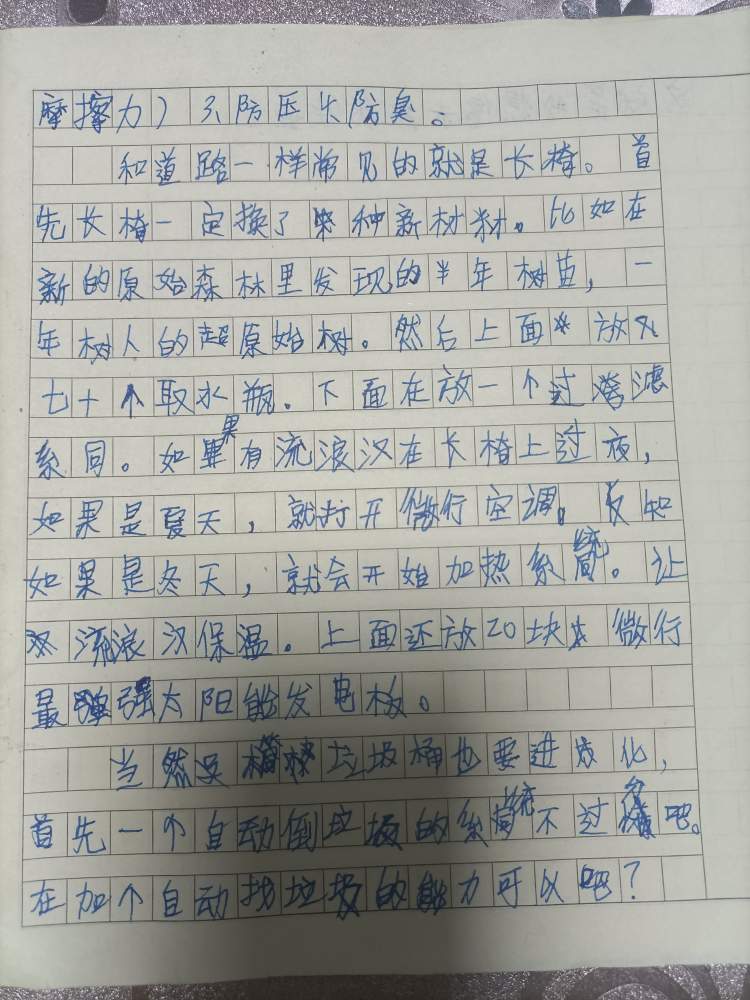 摩擦力）3、防压火防臭。
和道路一样常见的就是长椅。首
先长椅一定换了种新材料。比如在
新的原始森林里发现的半年树苗，一
年树人的超原始树。然后上面放
七十个取水瓶。下面在放一个过滤
系同。如果有流浪汉在长椅上过夜，
如果是夏天，就打开微行空调。
如果是冬天，就会开始加热系统。让
流浪汉保温。上面还放20块微行
最强太阳能发电板。
当然垃圾桶也要进化，
首先一个自动倒垃圾的系统不过分吧。
在加个自动找垃圾的能力可以吧？